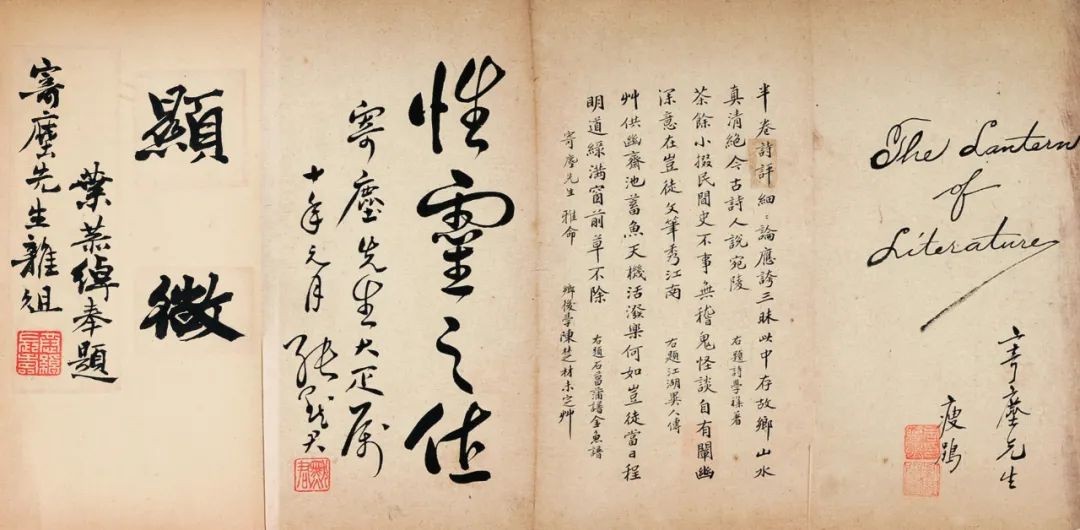 The Lantern
of
Literature
寄塵先生
瘦鵑
半卷詩評細:論應誇三昧此中存故鄉山水
真清絕今古詩人說宛陵 右題詩學著
茶餘小掇民間史不事無稽鬼怪談自有闡幽
深意在豈徒文筆秀江南 右題江湖異人傳
艸供幽齋池蓄魚天機活潑樂何如豈徒當日程
明道綠滿窗前草不除 右題石菖蒲譜金魚譜
寄塵先生 雅命 鄉後學陳楚材未定艸
性靈之作
寄塵先生大疋屬
十年元月 張默君
顯微
葉恭綽奉題
寄塵先生雜俎